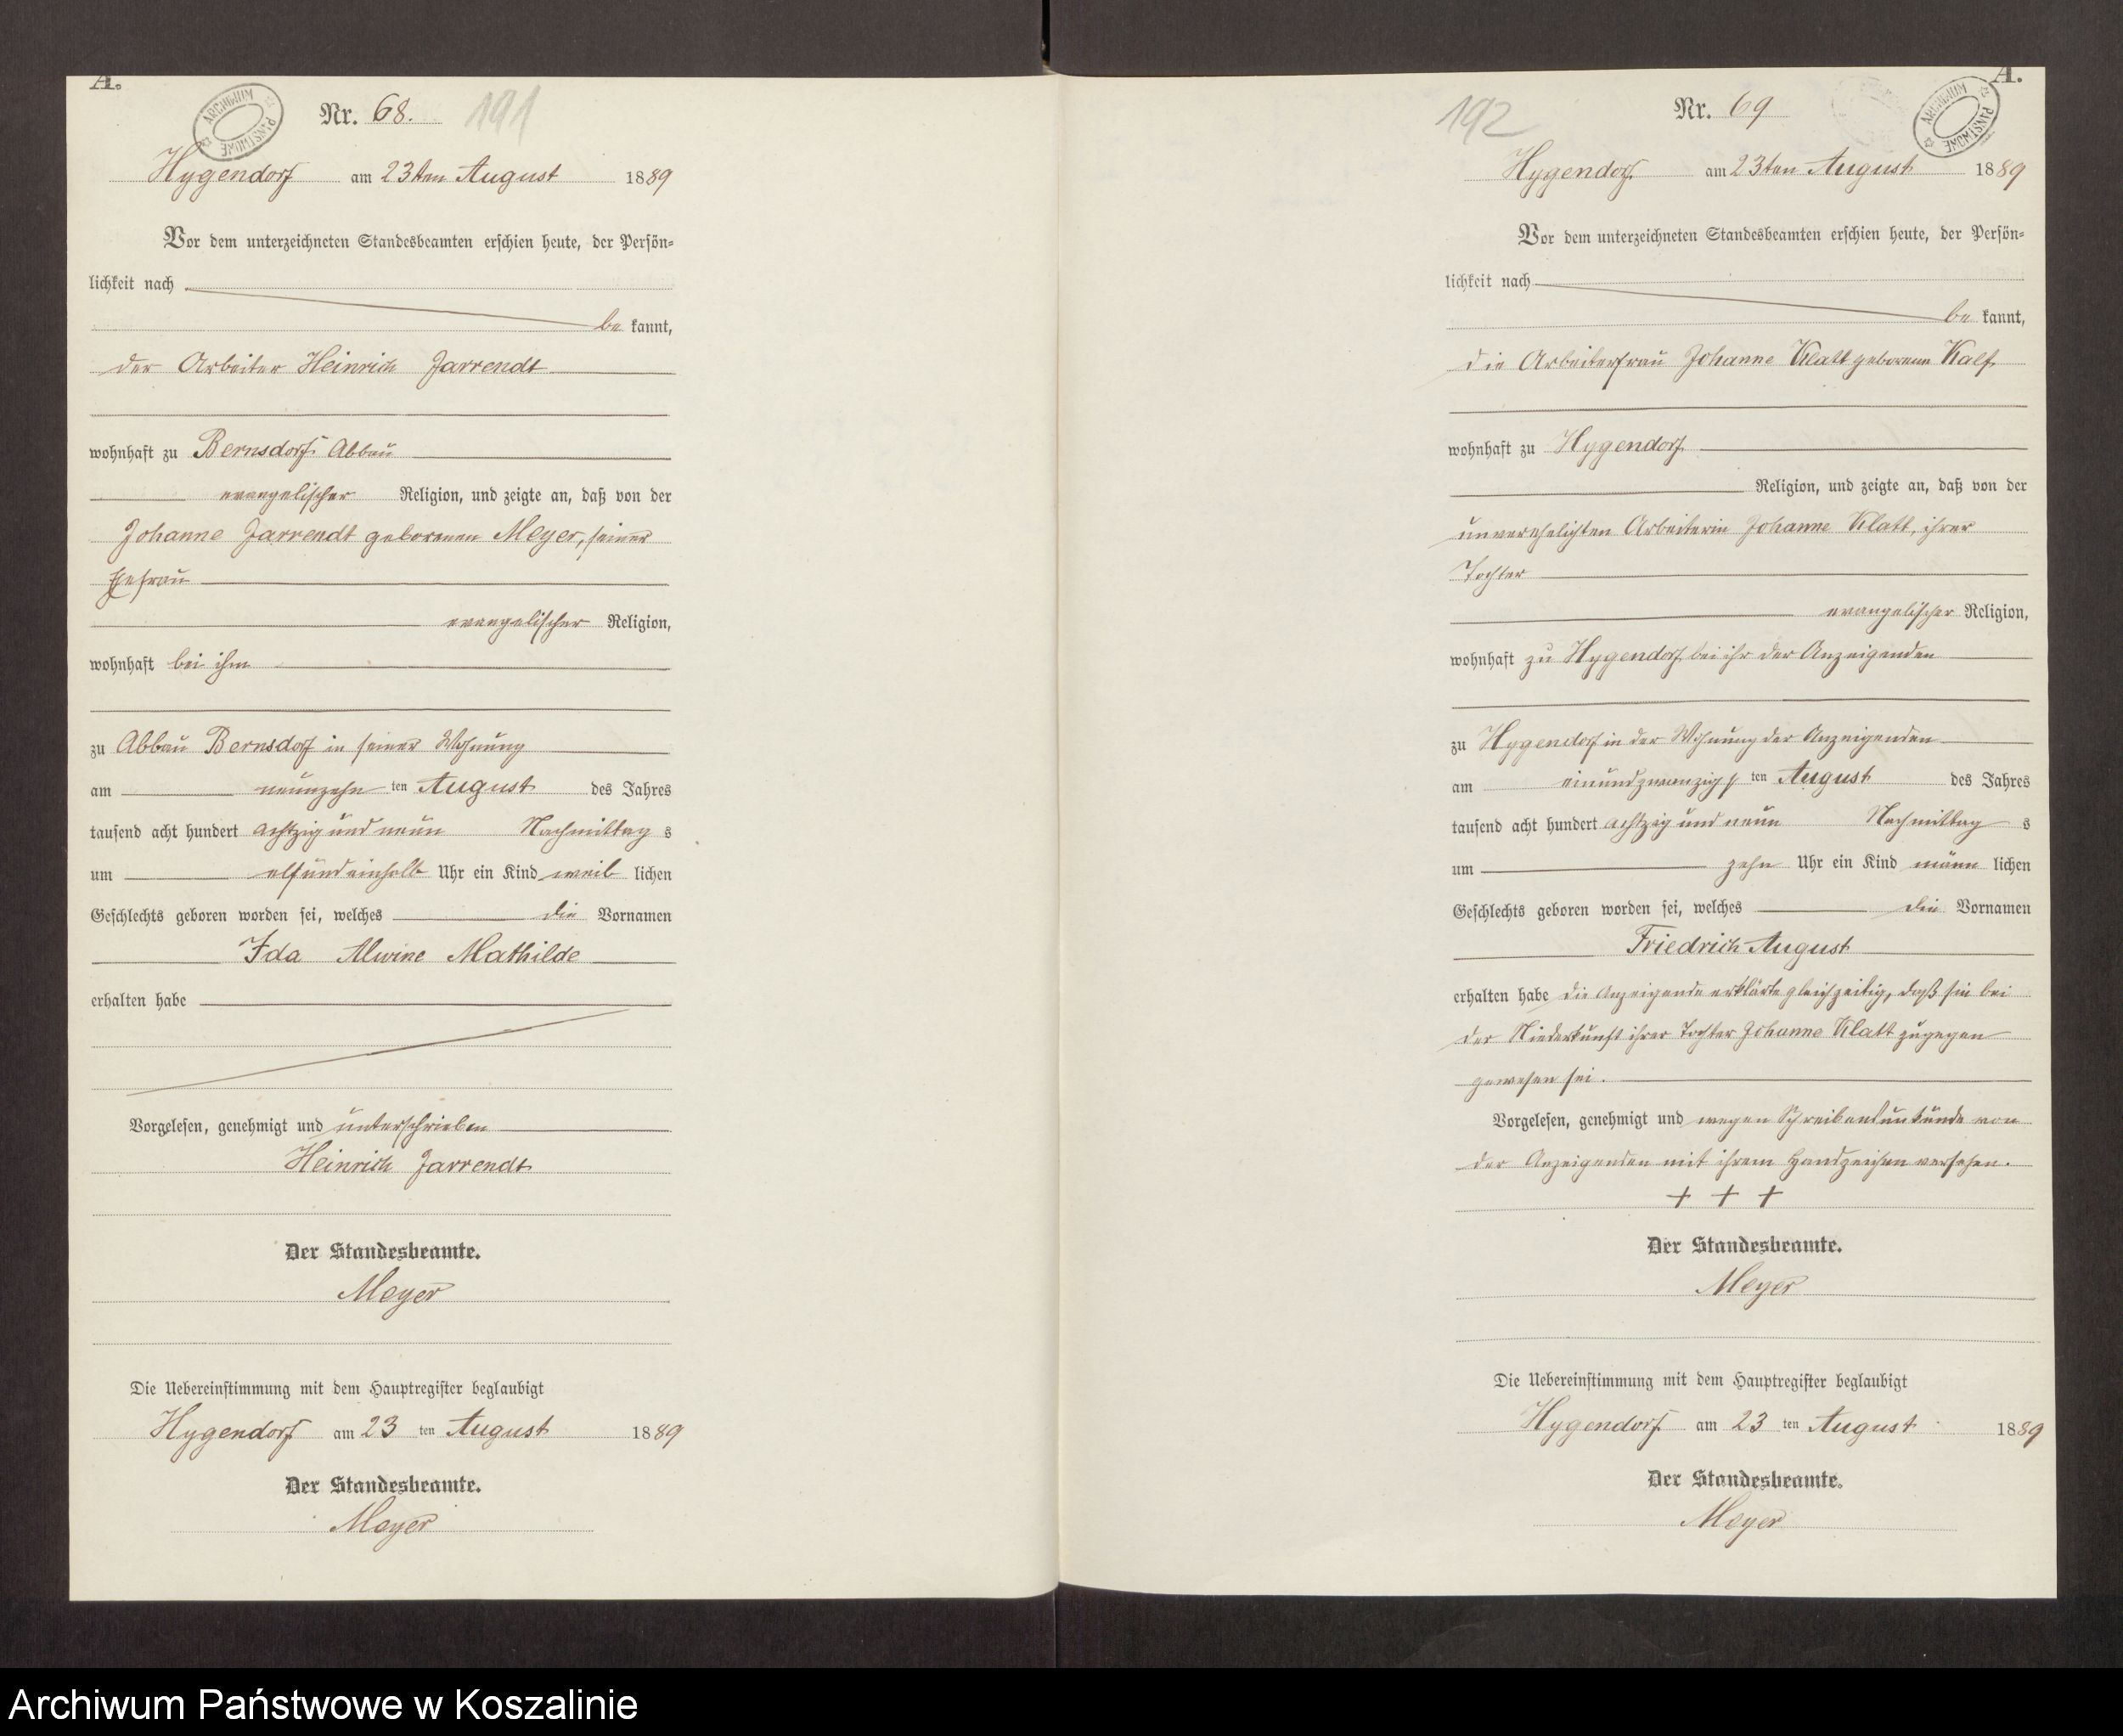 A.
ARCHIWUM PAŃSTWOWE
Nr. 68. 191
Hygendorf am 23ten August 1889
Vor dem unterzeichneten Standesbeamten erschien heute, der Persön=
lichkeit nach
be kannt,
der Arbeiter Heinrich Jarrendt
wohnhaft zu Bernsdorf Abbau
evangelischer Religion, und zeigte an, daß von der
Johanne Jarrendt geborenen Meyer, seiner
Ehefrau
evangelischer Religion,
wohnhaft bei ihm
zu Abbau Bernsdorf in seiner Wohnung
am neunzehn ten August des Jahres
tausend acht hundert achtzig und neun Nachmittag s
um elf und einhalb Uhr ein Kind weib lichen
Geschlechts geboren worden sei, welches die Vornamen
Ida Alwine Mathilde
erhalten habe
Vorgelesen, genehmigt und unterschrieben
Heinrich Jarrendt
Der Standesbeamte.
Meyer
Die Uebereinstimmung mit dem Hauptregister beglaubigt
Hygendorf am 23 ten August 1889
Der Standesbeamte.
Meyer
A.
ARCHIWUM PAŃSTWOWE
192 Nr. 69
Hygendorf am 23ten August 1889
Vor dem unterzeichneten Standesbeamten erschien heute, der Persön=
lichkeit nach
be kannt,
die Arbeiterfrau Johanne Klatt geborene
wohnhaft zu Hygendorf
Religion, und zeigte an, daß von der
unverehelichten Arbeiterin Johanne Klatt, ihrer
Tochter
evangelischer Religion,
wohnhaft zu Hygendorf bei ihr der Anzeigenden
zu Hygendorf in der Wohnung der Anzeigenden
am einundzwanzigs ten August des Jahres
tausend acht hundert achtzig und neun Nachmittag s
um zehn Uhr ein Kind männ lichen
Geschlechts geboren worden sei, welches die Vornamen
Friedrich August
erhalten habe die Anzeigende erklärte gleichzeitig, daß sie bei
der Niederkunft ihrer Tochter Johanne Klatt zugegen
gewesen sei.
Vorgelesen, genehmigt und wegen Schreibensunkunde von
der Anzeigenden mit ihrem Handzeichen versehen.
+ + +
Der Standesbeamte.
Meyer
Die Uebereinstimmung mit dem Hauptregister beglaubigt
Hygendorf am 23 ten August 1889
Der Standesbeamte.
Meyer
Archiwum Państwowe w Koszalinie